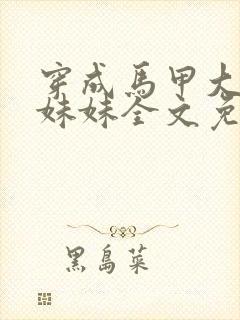 穿成馬甲大
妹妹全文免
黑島菜